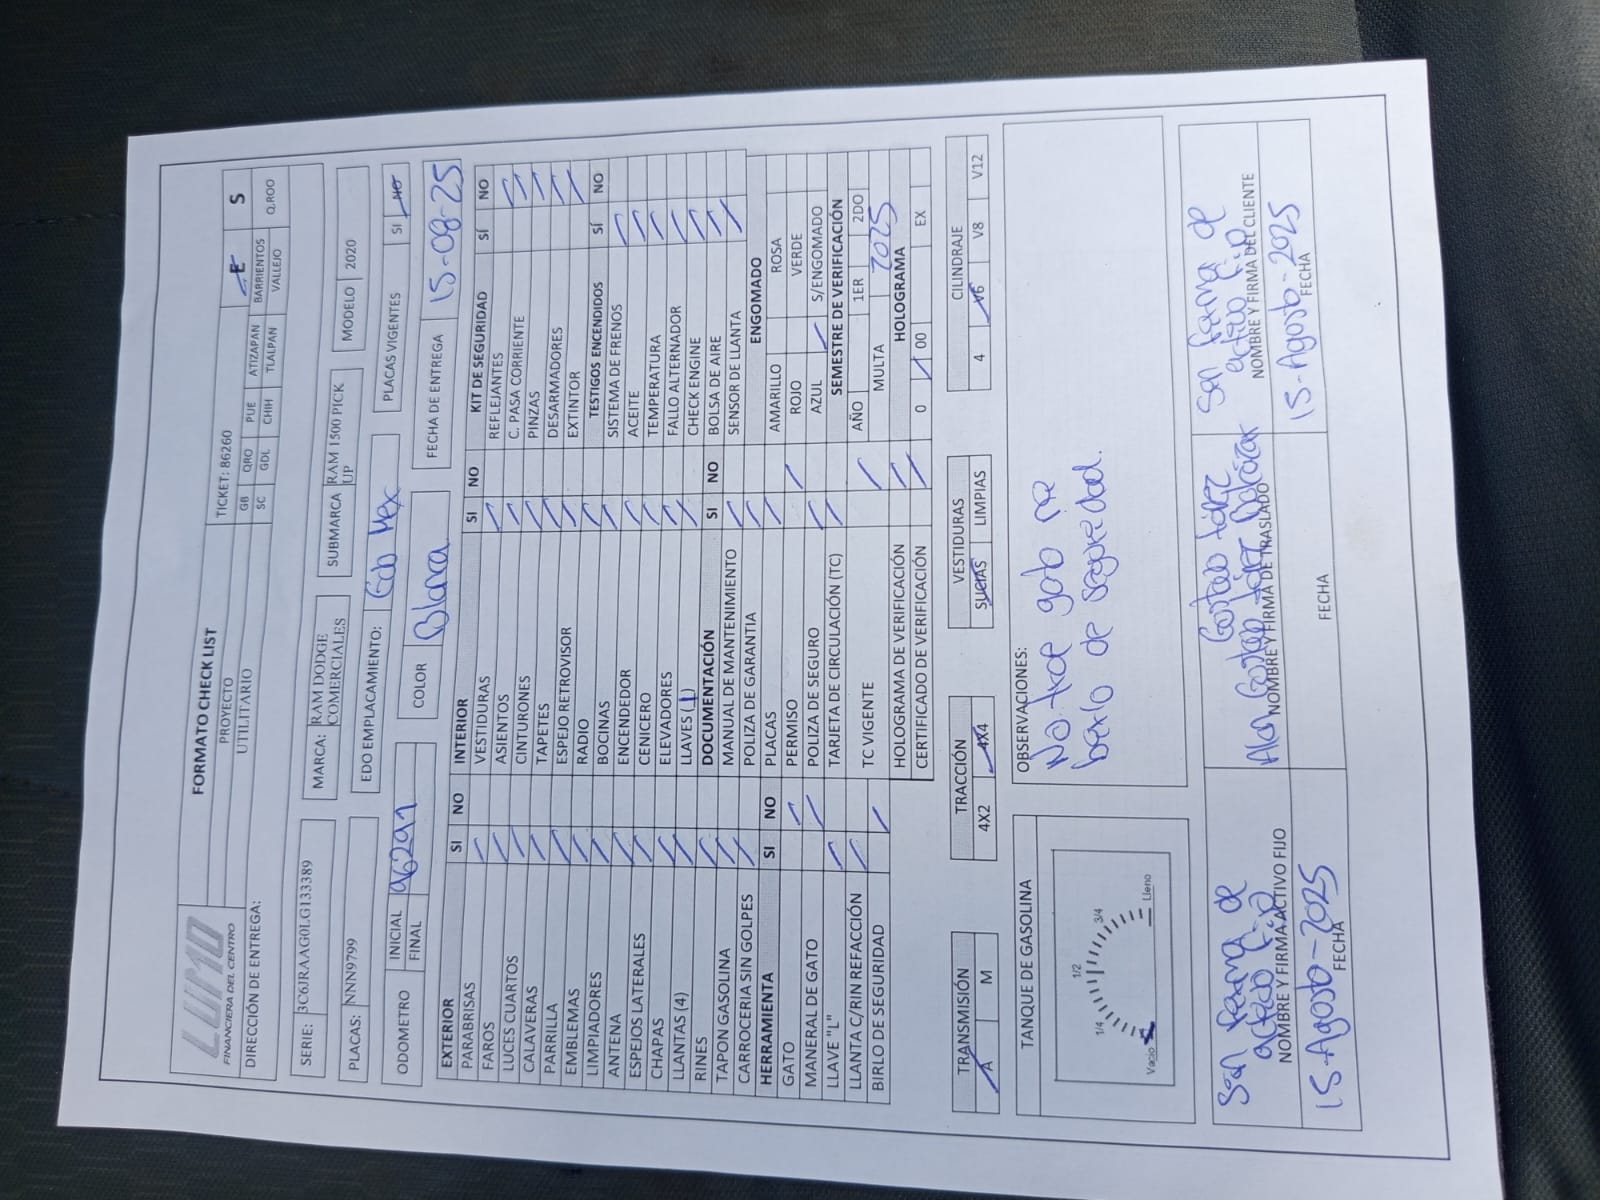 LUMO
FINANCIERA DEL CENTRO
FORMATO CHECK LIST
PROYECTO
UTILITARIO
TICKET: 86260
E S
DIRECCIÓN DE ENTREGA:
GB QRO PUE ATIZAPAN BARRIENTOS Q.ROO
SC GDL CHIH TLALPAN VALLEJO
SERIE: 3C6JRAAG0LG133389
MARCA: RAM DODGE COMERCIALES
SUBMARCA RAM 1500 PICK UP
MODELO 2020
PLACAS: NNN9799
EDO EMPLACAMIENTO: Edo Mex
PLACAS VIGENTES SI NO
ODOMETRO INICIAL 96291
FINAL
COLOR Blanca
FECHA DE ENTREGA 15-08-25
EXTERIOR SI NO
PARABRISAS
FAROS
LUCES CUARTOS
CALAVERAS
PARRILLA
EMBLEMAS
LIMPIADORES
ANTENA
ESPEJOS LATERALES
CHAPAS
LLANTAS (4)
RINES
TAPON GASOLINA
CARROCERIA SIN GOLPES
HERRAMIENTA SI NO
GATO
MANERAL DE GATO
LLAVE "L"
LLANTA C/RIN REFACCIÓN
BIRLO DE SEGURIDAD
INTERIOR SI NO
VESTIDURAS
ASIENTOS
CINTURONES
TAPETES
ESPEJO RETROVISOR
RADIO
BOCINAS
ENCENDEDOR
CENICERO
ELEVADORES
LLAVES (1)
DOCUMENTACIÓN SI NO
MANUAL DE MANTENIMIENTO
POLIZA DE GARANTIA
PLACAS
PERMISO
POLIZA DE SEGURO
TARJETA DE CIRCULACIÓN (TC)
TC VIGENTE
HOLOGRAMA DE VERIFICACIÓN
CERTIFICADO DE VERIFICACIÓN
KIT DE SEGURIDAD SÍ NO
REFLEJANTES
C. PASA CORRIENTE
PINZAS
DESARMADORES
EXTINTOR
TESTIGOS ENCENDIDOS SÍ NO
SISTEMA DE FRENOS
ACEITE
TEMPERATURA
FALLO ALTERNADOR
CHECK ENGINE
BOLSA DE AIRE
SENSOR DE LLANTA
ENGOMADO
AMARILLO ROSA
ROJO VERDE
AZUL S/ENGOMADO
SEMESTRE DE VERIFICACIÓN
AÑO 1ER 2DO
MULTA 2025
HOLOGRAMA
0 00 EX
TRANSMISIÓN
A M
TRACCIÓN
4X2 4X4
VESTIDURAS
SUCIAS LIMPIAS
CILINDRAJE
4 V6 V8 V12
TANQUE DE GASOLINA
Vacio 1/4 1/2 3/4 Lleno
OBSERVACIONES:
No trae gato ni
birlo de seguridad.
activo Fijo
NOMBRE Y FIRMA ACTIVO FIJO
15-Agosto-2025
FECHA
López
NOMBRE Y FIRMA DE TRASLADO
FECHA
activo Fijo
NOMBRE Y FIRMA DEL CLIENTE
15-Agosto-2025
FECHA